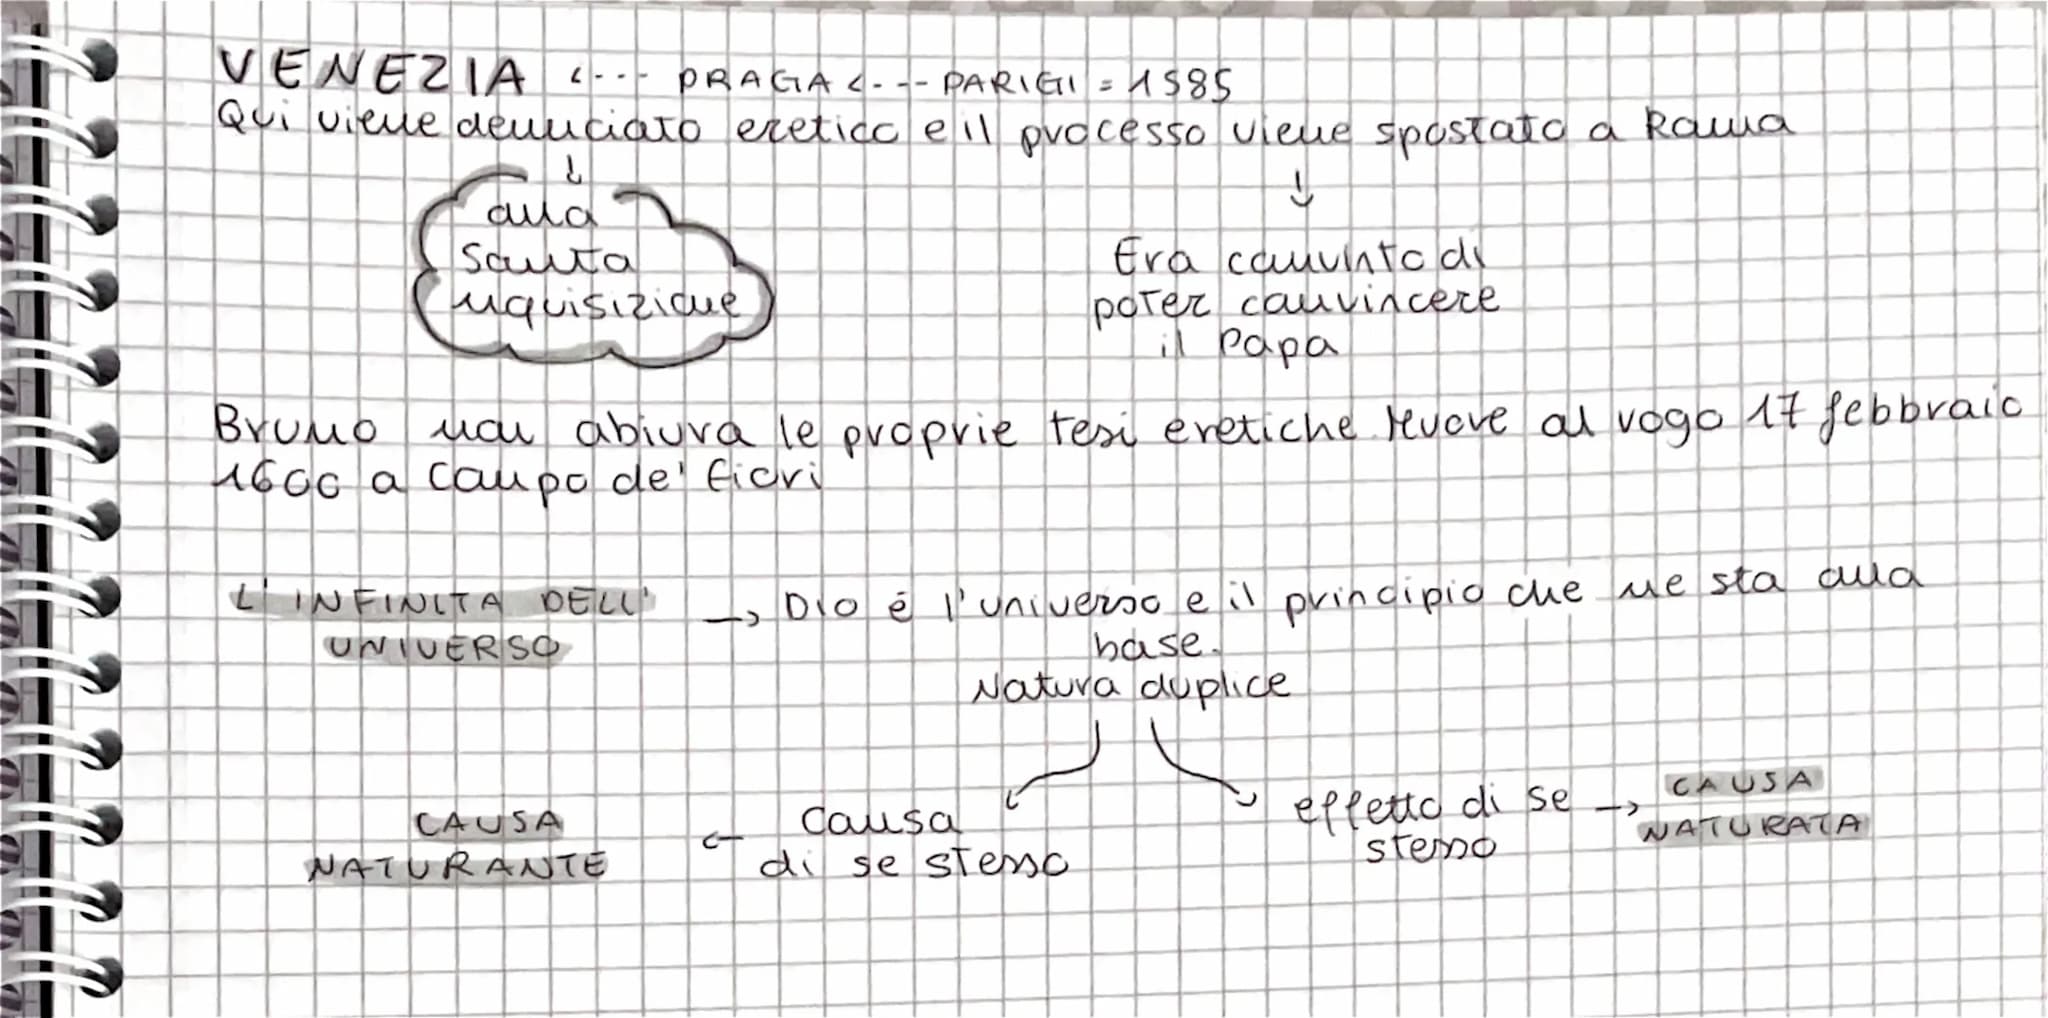 VENEZIA <--- PRAGA <--- PARIGI = 1585
Qui viene denunciato eretico e il processo viene spostato a Roma
↓ ↓
alla
Santa
inquisizione
Era convinto di
poter convincere
il Papa
Bruno non abiura le proprie tesi eretiche. Muore al rogo 17 febbraio
1600 a Campo de' fiori
L'INFINITA DELL'
UNIVERSO
→ DIO é l'universo e il principio che ne sta alla
base.
Natura duplice
CAUSA
NATURANTE
← causa
di se stesso
effetto di se
stesso
→ CAUSA
NATURATA